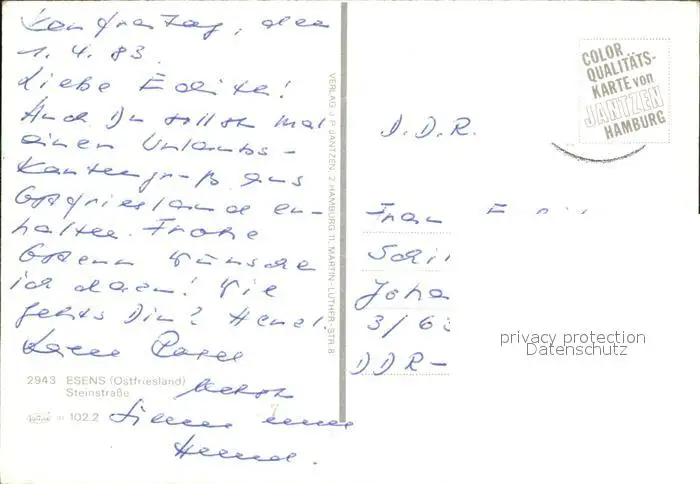 Karfreitag, den
1.4.83.
Liebe Edith!
Auch Du sollst mal
einen Urlaubs-
kartengruß aus
Ostfriesland er-
halten. Frohe
Ostern wünsche
ich dazu! Wie
gehts Dir? Herzl.
2943 ESENS (Ostfriesland)
Steinstraße
102.2
VERLAG J. P. JANTZEN, 2 HAMBURG 11, MARTIN-LUTHER-STR. 8
COLOR
QUALITÄTS-
KARTE von
JANTZEN
HAMBURG
D.D.R.
Frau
3/63
DDR-
privacy protection
Datenschutz